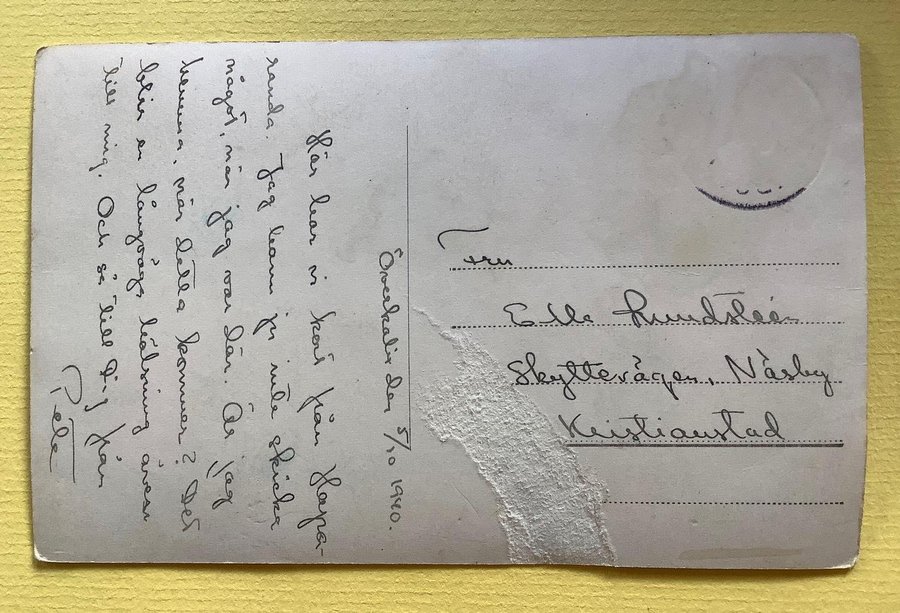 Överkalix den 5/10 1940.
Här har vi kort från Hapa-
randa. Jag hann ju inte skicka
något, när jag var där. Är jag
hemma, när detta kommer? Det
blir en långvägs hälsning även
till mig. Och så till Dig från
Pelle
Fru
Ella Lundstéen
Skyttevägen, Näsby
Kristianstad